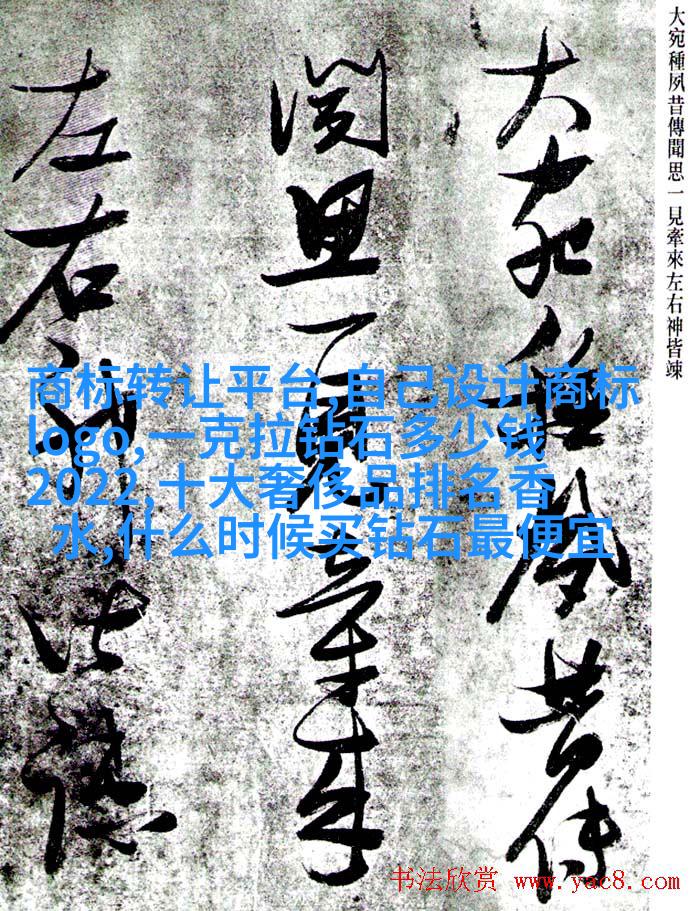 大宛種夙昔傳聞思一見牽來左右神皆竦
大宛種夙昔傳
聞思一見牽來
左右神皆竦
商标转让平台,自己设计商标
logo,一克拉钻石多少钱
2022,十大奢侈品排名香
水,什么时候买钻石最便宜
书法欣赏 www.yac8.com